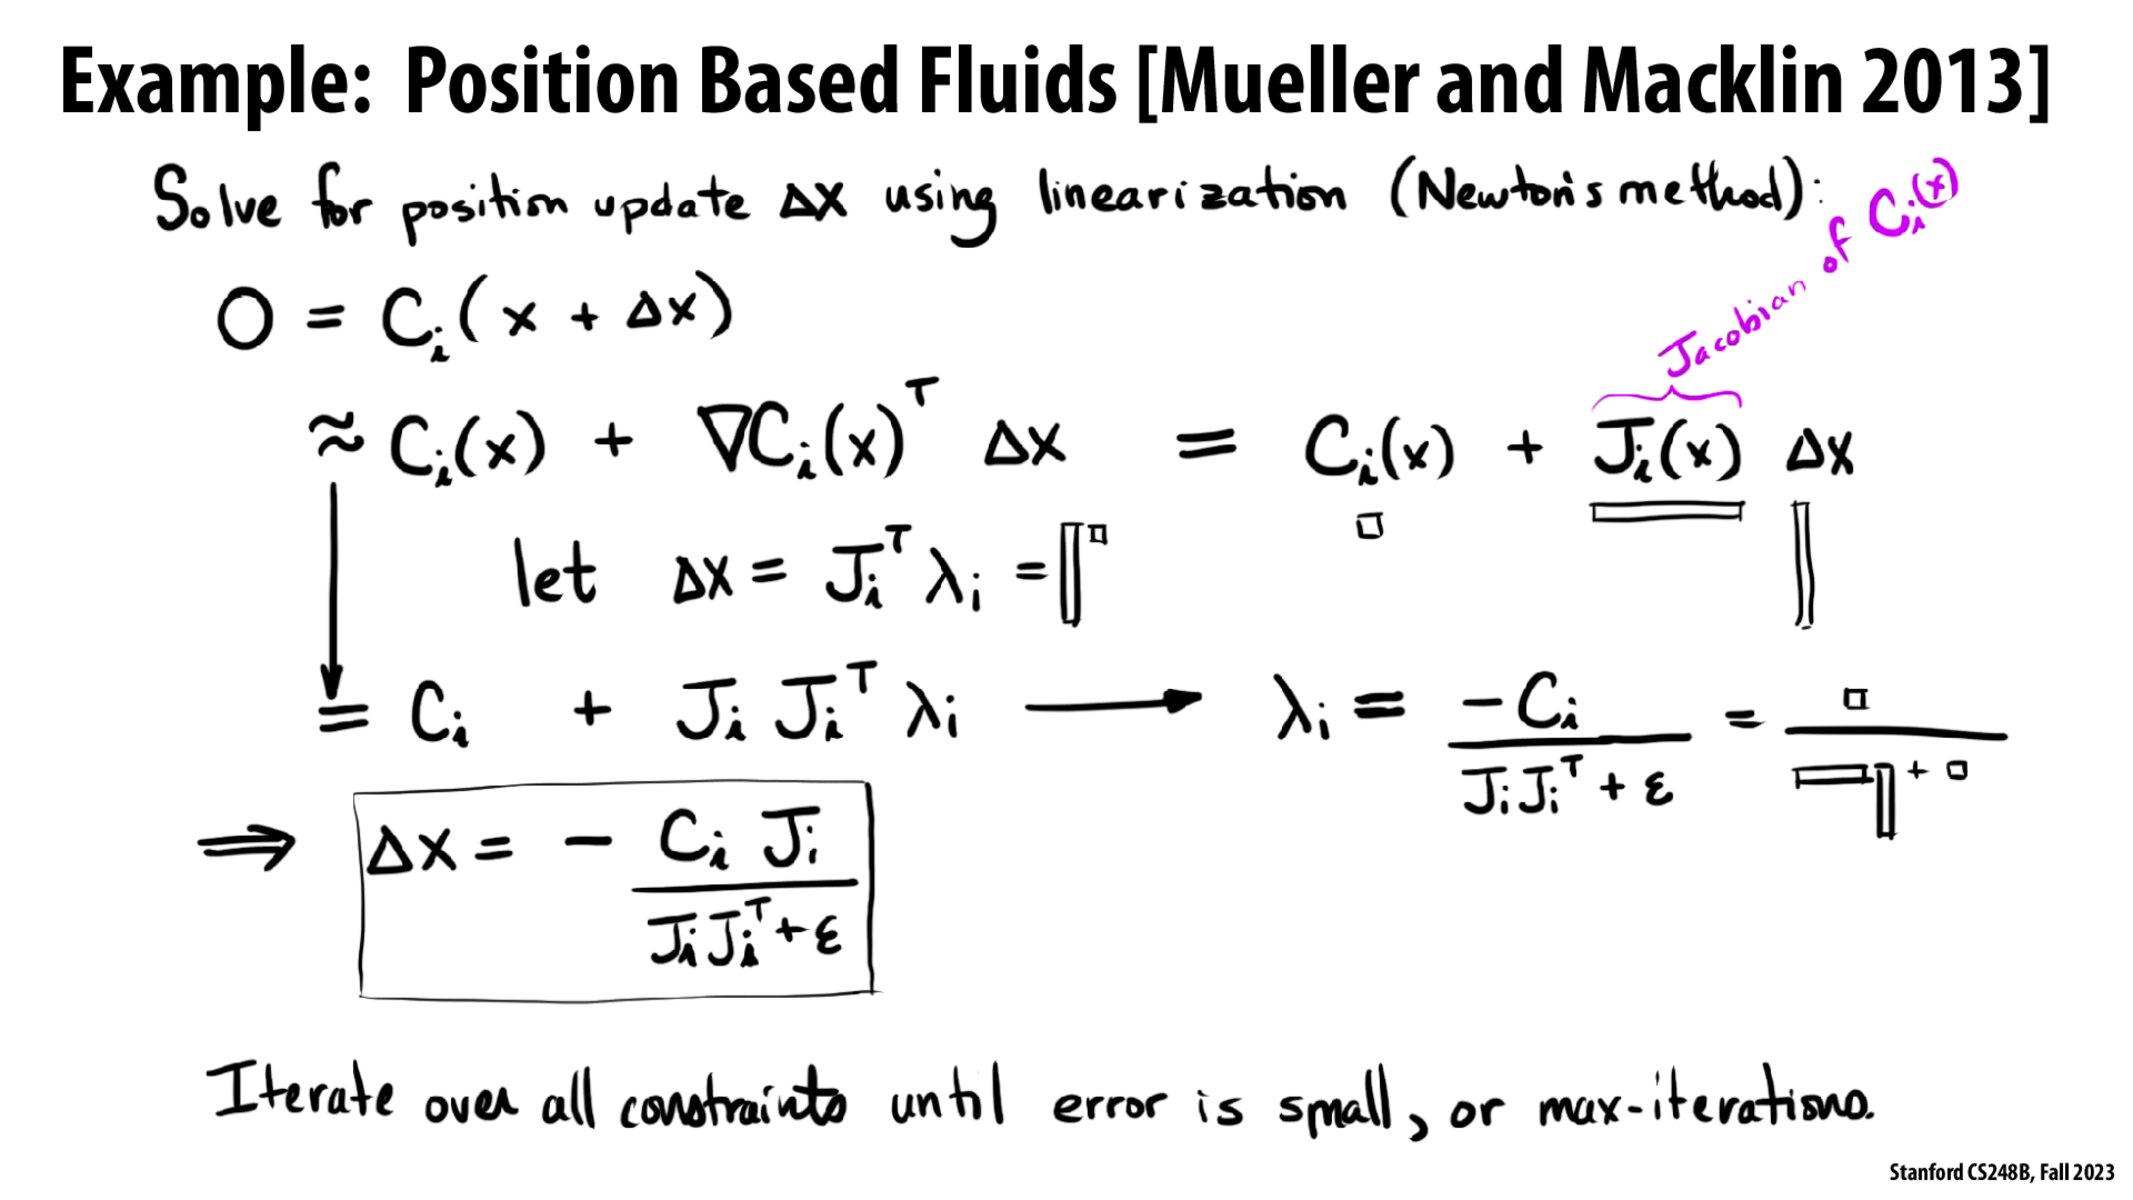 Example: Position Based Fluids [Mueller and Macklin 2013]
Solve for position update Δx using linearization (Newton's method):
Jacobian of Cᵢ(x)
0 = Cᵢ(x + Δx)
≈ Cᵢ(x) + ∇Cᵢ(x)ᵀ Δx = Cᵢ(x) + Jᵢ(x) Δx
let Δx = Jᵢᵀ λᵢ =
= Cᵢ + Jᵢ Jᵢᵀ λᵢ → λᵢ = -Cᵢ / (JᵢJᵢᵀ + ε) = □ / (▭▯ + □)
⇒ Δx = - Cᵢ Jᵢ / (JᵢJᵢᵀ + ε)
Iterate over all constraints until error is small, or max-iterations.
Stanford CS248B, Fall 2023